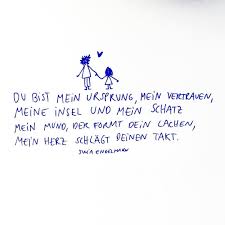 DU BIST MEIN URSPRUNG, MEIN VERTRAUEN,
MEINE INSEL UND MEIN SCHATZ
MEIN MUND, DER FORMT DEIN LACHEN,
MEIN HERZ SCHLÄGT DEINEN TAKT.
JULIA ENGELMANN